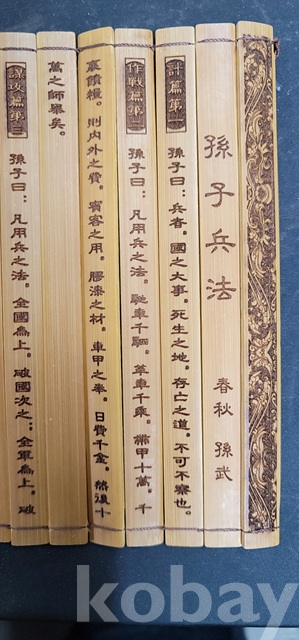 孫子兵法
春秋 孫武
計篇第一
孫子曰：兵者。國之大事。死生之地。存亡之道。不可不察也。
作戰篇第二
孫子曰：凡用兵之法。馳車千駟。革車千乘。帶甲十萬。千
裏饋糧。則內外之費。賓客之用。膠漆之材。車甲之奉。日費千金。然後十
萬之師舉矣。
謀攻篇第三
孫子曰：凡用兵之法。全國為上。破國次之：全軍為上。破
kobay